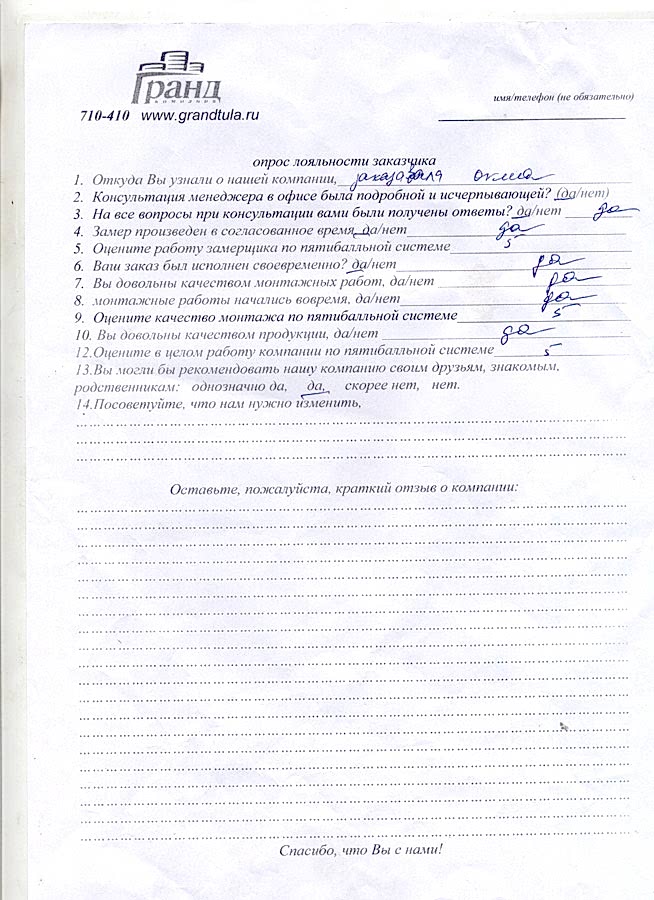 Гранд
КОМПАНИЯ
710-410 www.grandtula.ru
имя/телефон (не обязательно)
опрос лояльности заказчика
1. Откуда Вы узнали о нашей компании, окна
2. Консультация менеджера в офисе была подробной и исчерпывающей? (да/нет)
3. На все вопросы при консультации вами были получены ответы? да/нет да
4. Замер произведен в согласованное время, да/нет да
5. Оцените работу замерщика по пятибалльной системе 5
6. Ваш заказ был исполнен своевременно? да/нет да
7. Вы довольны качеством монтажных работ, да/нет да
8. монтажные работы начались вовремя, да/нет да
9. Оцените качество монтажа по пятибалльной системе 5
10. Вы довольны качеством продукции, да/нет да
12.Оцените в целом работу компании по пятибалльной системе 5
13.Вы могли бы рекомендовать нашу компанию своим друзьям, знакомым,
родственникам: однозначно да, да, скорее нет, нет.
14.Посоветуйте, что нам нужно изменить,
Оставьте, пожалуйста, краткий отзыв о компании:
Спасибо, что Вы с нами!